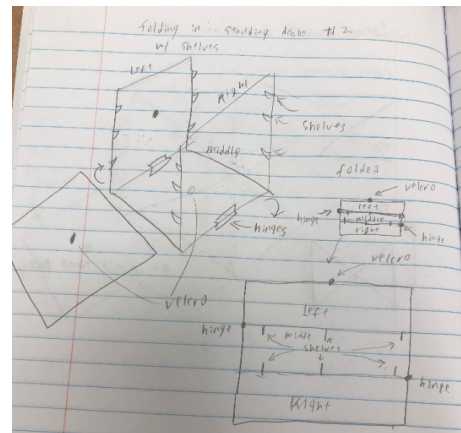 folding in standing desk #2
w/ shelves
Left
Right
shelves
middle
folded
velcro
hinge
left
middle
right
hinge
hinges
velcro
velcro
Left
hinge
middle
shelves
hinge
Right